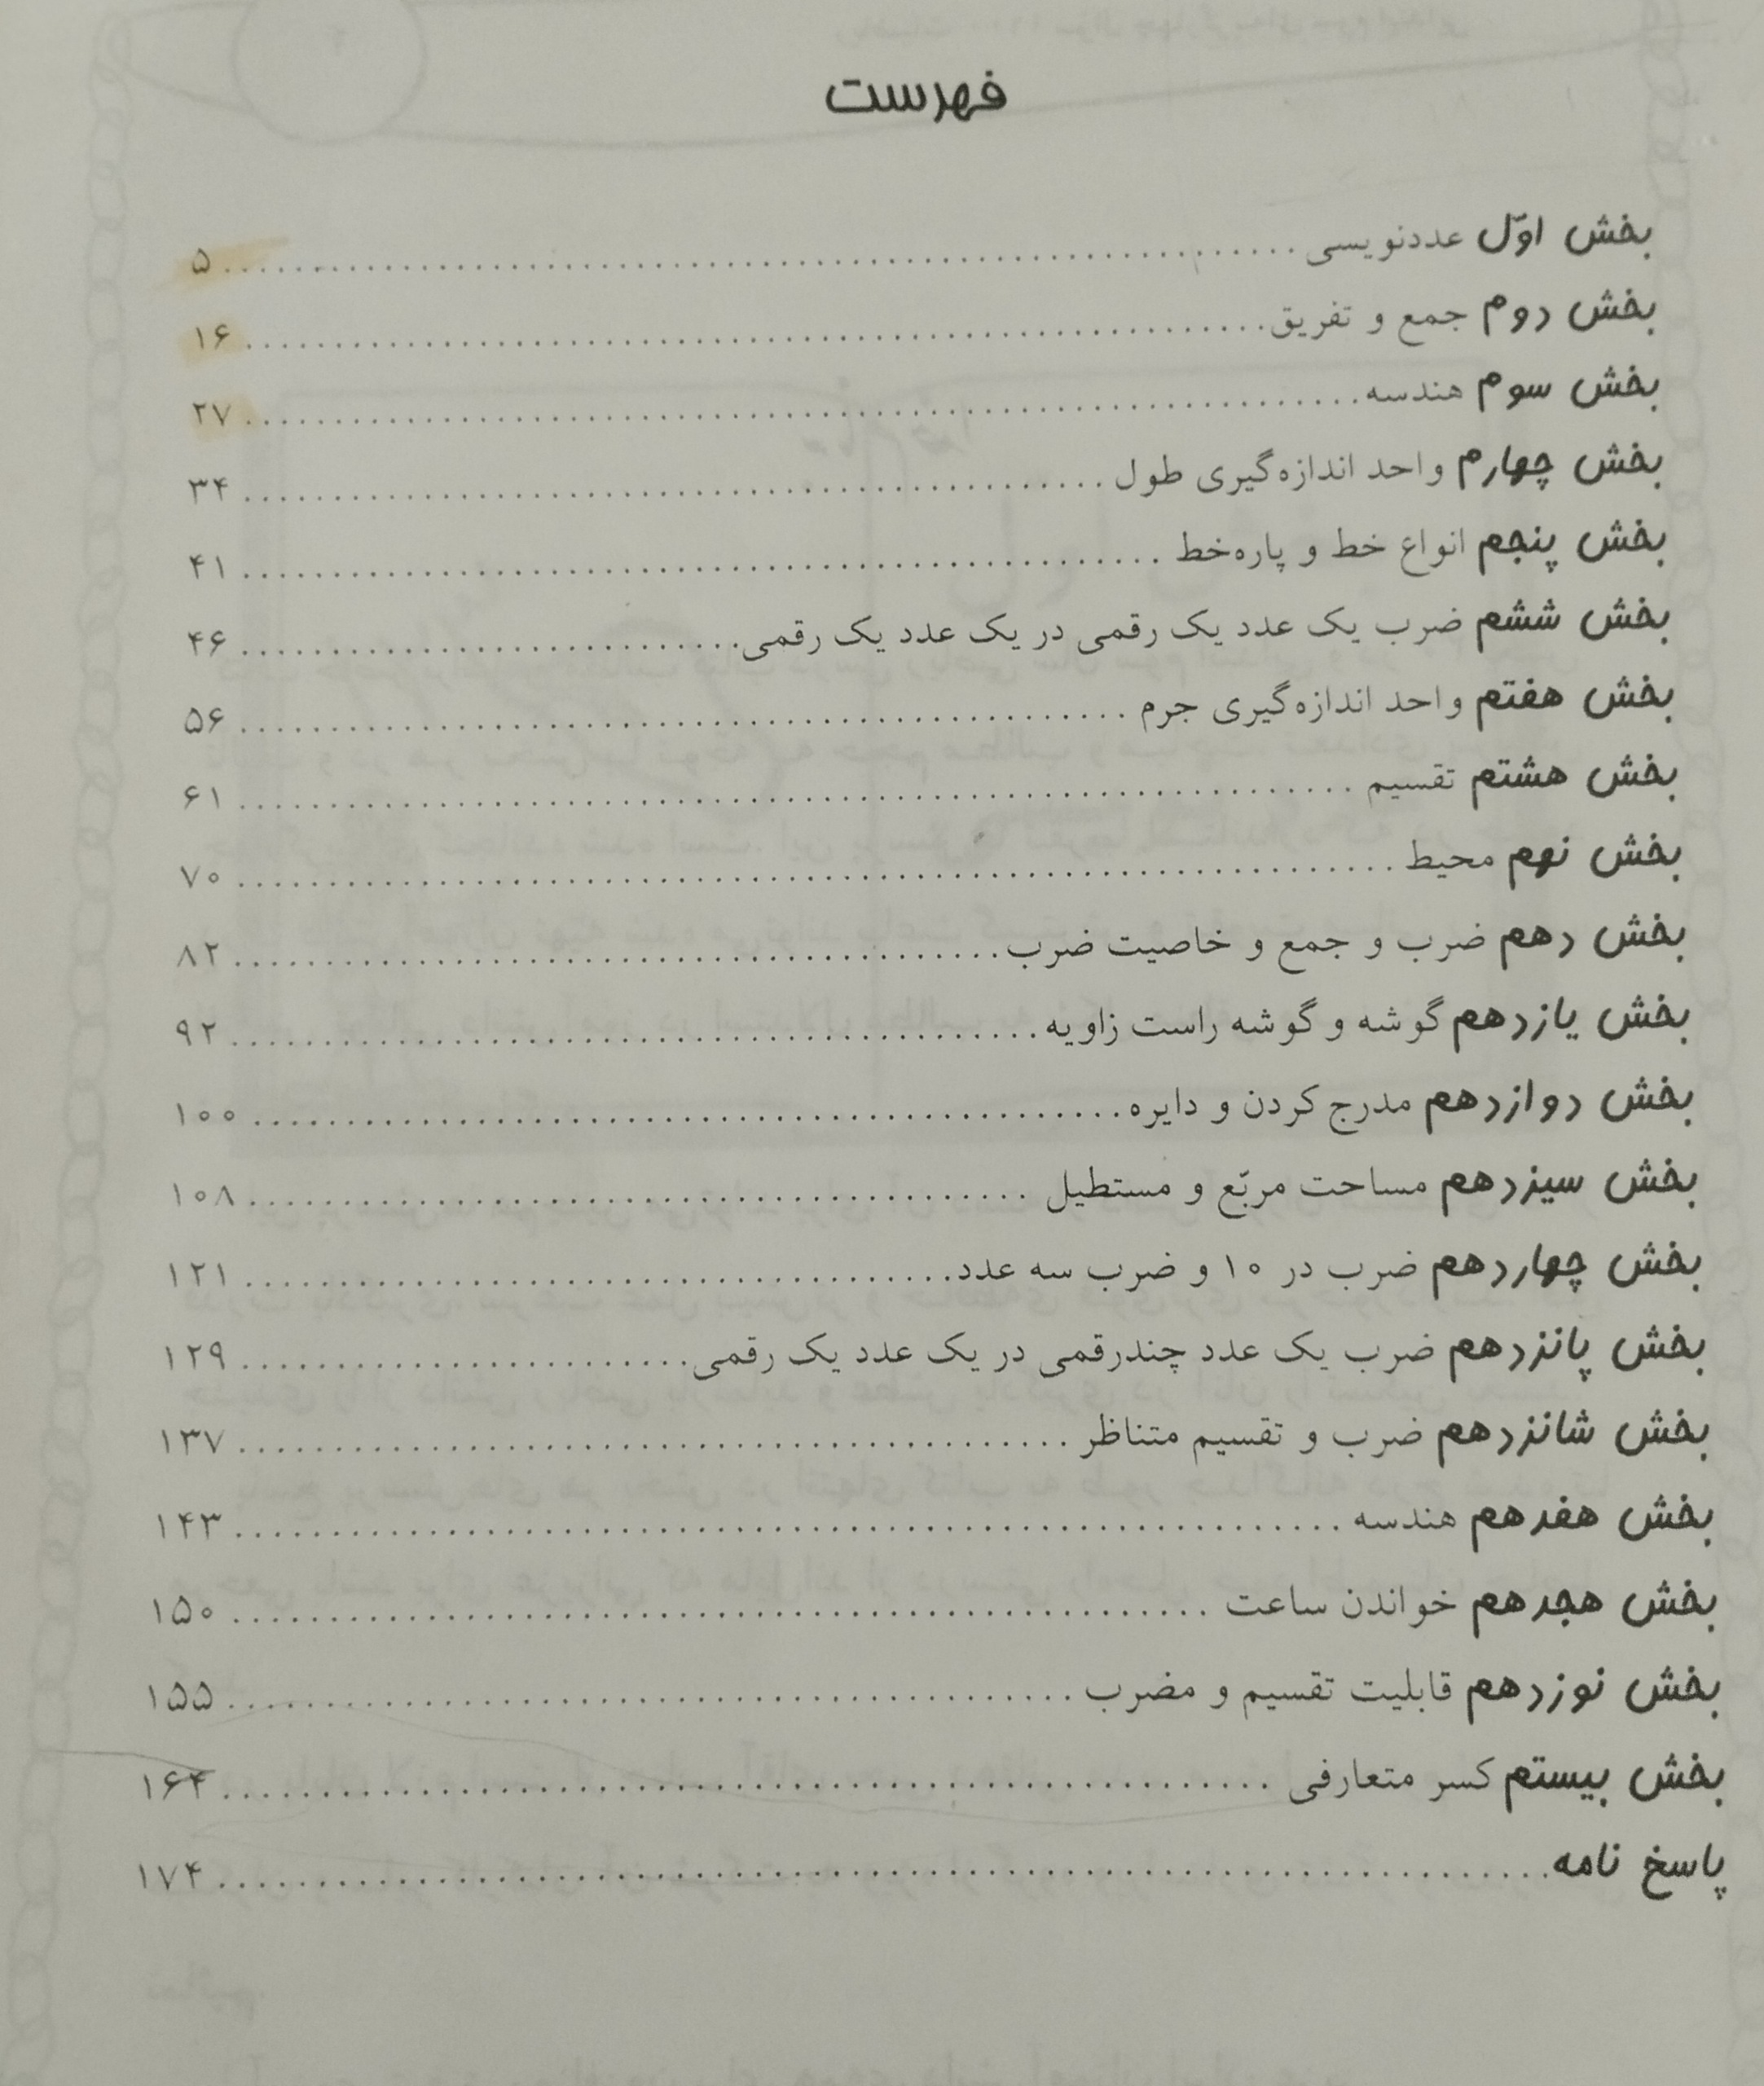 فهرست
بخش اوّل عددنویسی ........ ۵
بخش دوم جمع و تفریق ........ ۱۶
بخش سوم هندسه ........ ۲۷
بخش چهارم واحد اندازه‌گیری طول ........ ۳۴
بخش پنجم انواع خط و پاره‌خط ........ ۴۱
بخش ششم ضرب یک عدد یک رقمی در یک عدد یک رقمی ........ ۴۶
بخش هفتم واحد اندازه‌گیری جرم ........ ۵۶
بخش هشتم تقسیم ........ ۶۱
بخش نهم محیط ........ ۷۰
بخش دهم ضرب و جمع و خاصیت ضرب ........ ۸۲
بخش یازدهم گوشه و گوشه راست زاویه ........ ۹۲
بخش دوازدهم مدرج کردن و دایره ........ ۱۰۰
بخش سیزدهم مساحت مربّع و مستطیل ........ ۱۰۸
بخش چهاردهم ضرب در ۱۰ و ضرب سه عدد ........ ۱۲۱
بخش پانزدهم ضرب یک عدد چندرقمی در یک عدد یک رقمی ........ ۱۲۹
بخش شانزدهم ضرب و تقسیم متناظر ........ ۱۳۷
بخش هفدهم هندسه ........ ۱۴۳
بخش هجدهم خواندن ساعت ........ ۱۵۰
بخش نوزدهم قابلیت تقسیم و مضرب ........ ۱۵۵
بخش بیستم کسر متعارفی ........ ۱۶۴
پاسخ نامه ........ ۱۷۴